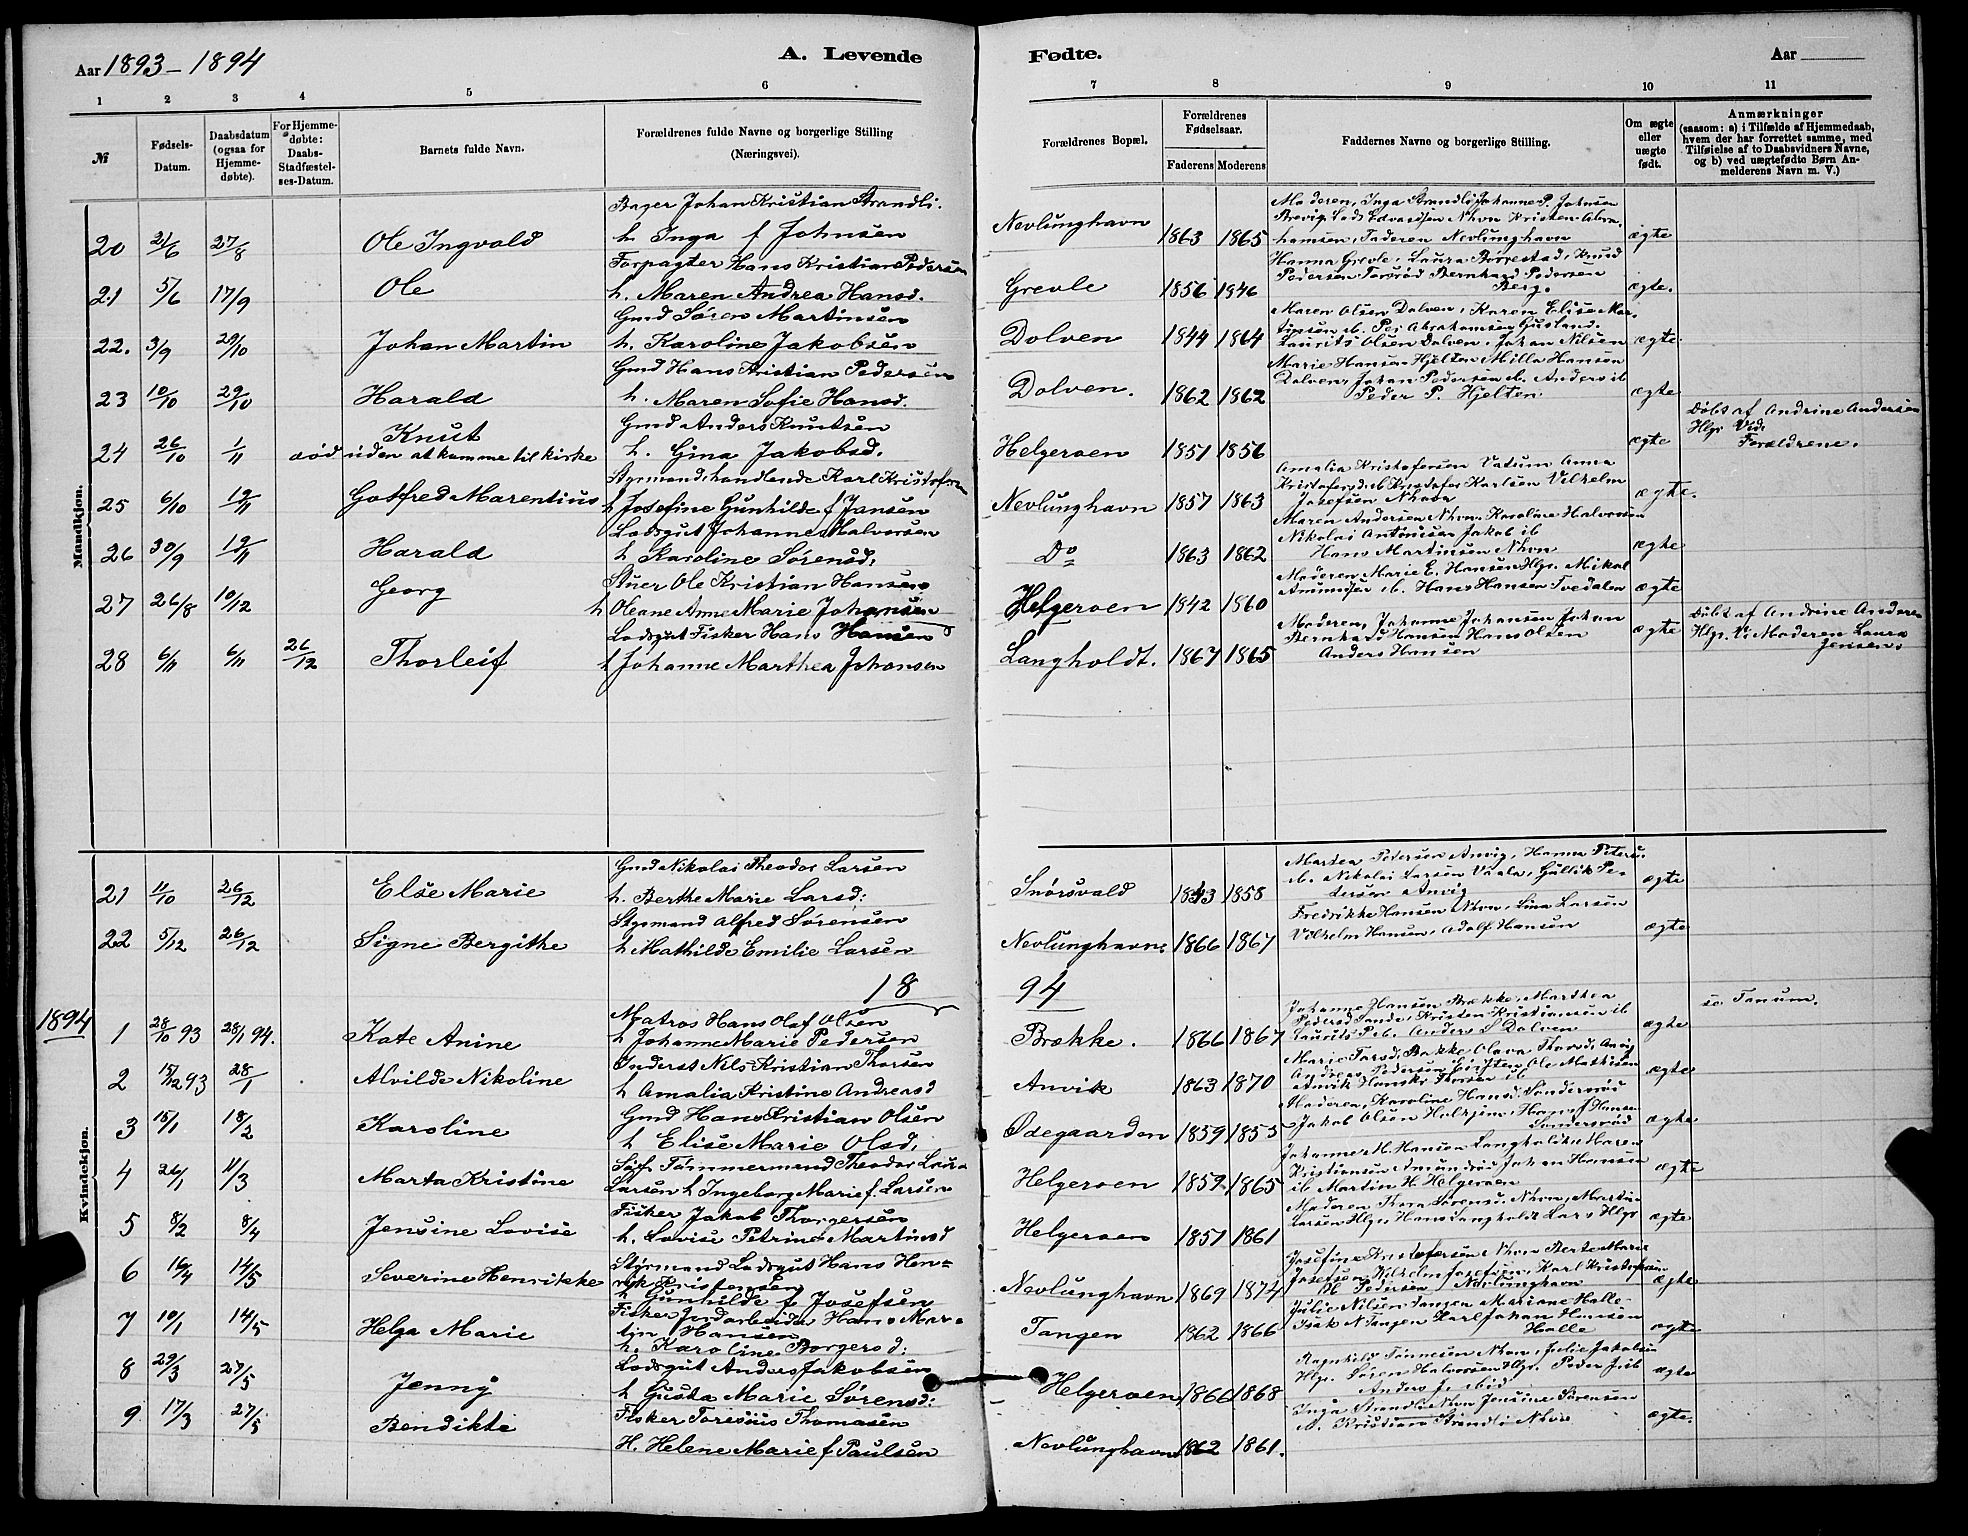 Aar 1893-1894
A. Levende
Fødte.
Aar
1 2 3 4 5 6 7 8 9 10 11
№
Fødsels-Datum.
Daabsdatum (ogsaa for Hjemme-døbte).
For Hjemme-døbte: Daabs-Stadfæstel-ses-Datum.
Barnets fulde Navn.
Forældrenes fulde Navne og borgerlige Stilling (Næringsvei).
Forældrenes Bopæl.
Forældrenes Fødselsaar.
Faderens Moderens
Faddernes Navne og borgerlige Stilling.
Om ægte eller uægte født.
Anmærkninger
(saasom: a) i Tilfælde af Hjemmedaab,
hvem der har forrettet samme, med
Tilføielse af to Daabsvidners Navne,
og b) ved uægtefødte Børn An-
melderens Navn m. V.)
Mandkjøn.
Bager Johan Kristian Strandli.
20 21/6 27/8 Ole Ingvald h. Inga f Johnsen Nevlunghavn 1863 1865 ægte
Moderen, Inga Strandli, Johanne P. Johnsen
Brevig, Lods Edvardsen Nhvn Kristen Abra-
hamsen, Faderen Nevlunghavn
Forpagter Hans Kristian Pedersen
21 5/6 17/9 Ole h. Maren Andrea Hansd. Grevle 1856 1846 ægte.
Hanna Grevle, Laura Brørestad, Knud
Pedersen Torsrød Bernhard Pedersen
Berg.
Gmd Søren Martinsen
22. 3/9 29/10 Johan Martin h. Karoline Jakobsen Dolven 1844 1864 ægte
Maren Olsen Dolven, Karen Elise Mar-
tinsen ib. Per Abrahamsen Gusland.
Laurits Olsen Dolven, Johan Nilsen
Gmd Hans Kristian Pedersen
23 10/10 29/10 Harald h. Maren Sofie Hansd. Dolven. 1862 1862 ægte
Marie Hansen Hjelten Milla Hansen
Dolven, Johan Pedersen ib. Anders ib
Peder P. Hjelten
Gmd Anders Knutsen
24 26/10 1/11 Knut h. Gina Jakobsd. Helgeroen 1851 1856 ægte
død uden at komme til kirke
Døbt af Andrine Andersen
Hlgr Vid:
Forældrene.
Styrmand, handlende Karl Kristofersen
25 6/10 19/11 Gotfred Marentius h Josefine Gunhilde f Jansen Nevlunghavn 1857 1863 ægte.
Amalia Kristofersen Vatum Anna
Kristofersd ib Kristofer Karlsen Vilhelm
Josefsen Nhavn
Lodsgut Johannes Halvorsen
26 30/9 19/11 Harald h Karoline Sørensd. Do 1863 1862 ægte
Maren Andersen Nhvn, Karoline Halvorsen
Nikolai Antonisen Jakob ib
Hans Martinsen Nhvn
Stuer Ole Kristian Hansen
27 26/8 10/12 Georg h Oleane Anne Marie Johansen Helgeroen 1842 1860 ægte
Moderen Marie E. Hansen Hlgr. Mikal
Amundsen ib. Hans Hansen Tvedalen
Lodsgut Fisker Hans Hansen
28 6/11 6/11 26/12 Thorleif h Johanne Marthea Johansen Langholdt. 1867 1865 ægte
Moderen, Johanne Johansen Johan
Bernhard Hansen Hans Olsen
Anders Hansen
Døbt af Andrine Andersen
Hlgr. V: Moderen Laura
Jensen.
Kvindekjøn.
Gmd Nikolai Theodor Larsen
21 11/10 26/12 Else Marie h. Berthe Marie Larsd: Snørsvald 1843 1858 ægte
Martea Pedersen Anvig, Hanna Peters.
ib. Nikolai Larsen Vaala, Gullik Pe-
dersen Anvig
Styrmand Alfred Sørensen
22 5/12 26/12 Signe Bergithe h Mathilde Emilie Larsen Nevlunghavn. 1866 1867 ægte
Fredrikke Hansen Nhvn, Lina Larsen
Vilhelm Hansen, Adolf Hansen
18 94
1894
Matros Hans Olaf Olsen
1 28/10 93 28/1 94. Kate Anine h Johanne Marie Pedersen Brække. 1866 1867 ægte
Johanne Hansen Brække, Marthea
Pedersd Sande, Kristen Kristiansen ib
Laurits P ib. Anders L Dolven
se Tanum.
Inderst Nils Kristian Thorsen
2 15/12 93 28/1 Alvilde Nikoline h Amalia Kristine Andreasd Anvik 1863 1870 ægte
Gmd Hans Kristian Olsen
3 15/1 18/2 Karoline h Elise Marie Olsd. Ødegaarden 1859 1855 ægte
Moderen, Karoline Hansd. Søndersrød
Jakob Olsen
Søndersrød
Tømmermand Theodor Laura
4 26/1 11/3 Marta Kristine Larsen h Ingeborg Marie f. Larsen Helgeroen 1859 1865 ægte
Johanne M. Hansen Langholdt, Maren
Kristiansen Amundrød Johan Hansen
ib Martin H. Helgeroen
Fisker Jakob Thorgersen
5 8/2 8/4 Jensine Lovise h. Lovise Petrine Martinsd Helgeroen 1851 1861 ægte
Moderen Thora Sørensd. Nhvn, Martin
Larsen Hlgr, Hans Langholdt Lars Hlgr
Styrmand Lodsgut Hans Hen-
6 16/4 14/5 Severine Henrikke rik Kristensen h Gunhilde f Josefsen Nevlunghavn 1869 1874 ægte
Josefine Kristofersen Nhvn Berte Marie
Josefsen, Vilhelm Josefsen, Karl Kristofersen
Pedersen Nevlunghavn
Fisker Jordarbeider Hans Mar-
7 10/1 14/5 Helga Marie tin Hansen h. Karoline Borgersd: Tangen 1862 1866 ægte
Julie Nilsen Tangen Mariane Halle
Isak N Tangen Karl Johan Hansen
Halle
Lodsgut Anders Jakobsen
8 29/3 27/5 Jenny h Gusta Marie Sørensd: Helgeroen 1866 1868 ægte
Ragnhild Tønnesen Nhvn, Julie Jakobsen
Hlgr. Søren Halvorsen Hlgr. Peder J ib
Anders J. ibid
Fisker Toresius Thomasen
9 17/3 27/5 Bendikte H. Helene Marie f Paulsen Nevlunghavn 1862 1861. ægte.
Inga Strandli Nhvn Jensine Sørensen
ib. Kristian Strandli Nhvn